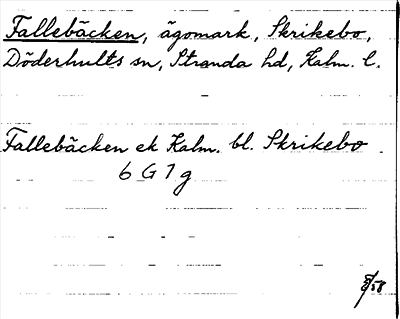 Fallebäcken, ägomark, Skrikebo,
Döderhults sn, Stranda hd, Kalm. l.
Fallebäcken ek Kalm. bl. Skrikebo
6 G 7 g